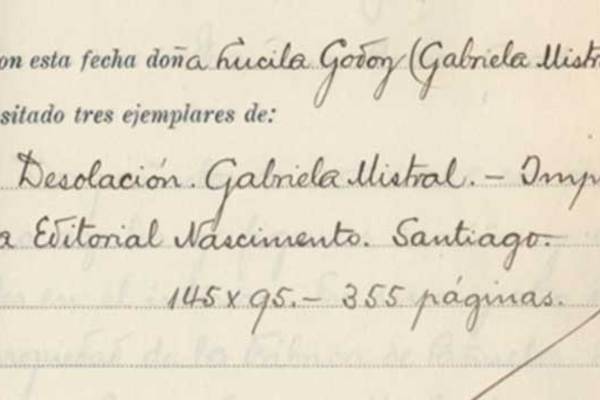 on esta fecha doña Lucila Godoy (Gabriela Mistr
sitado tres ejemplares de:
Desolación. Gabriela Mistral. – Imp
a Editorial Nascimento. Santiago.
145 x 95. – 355 páginas.